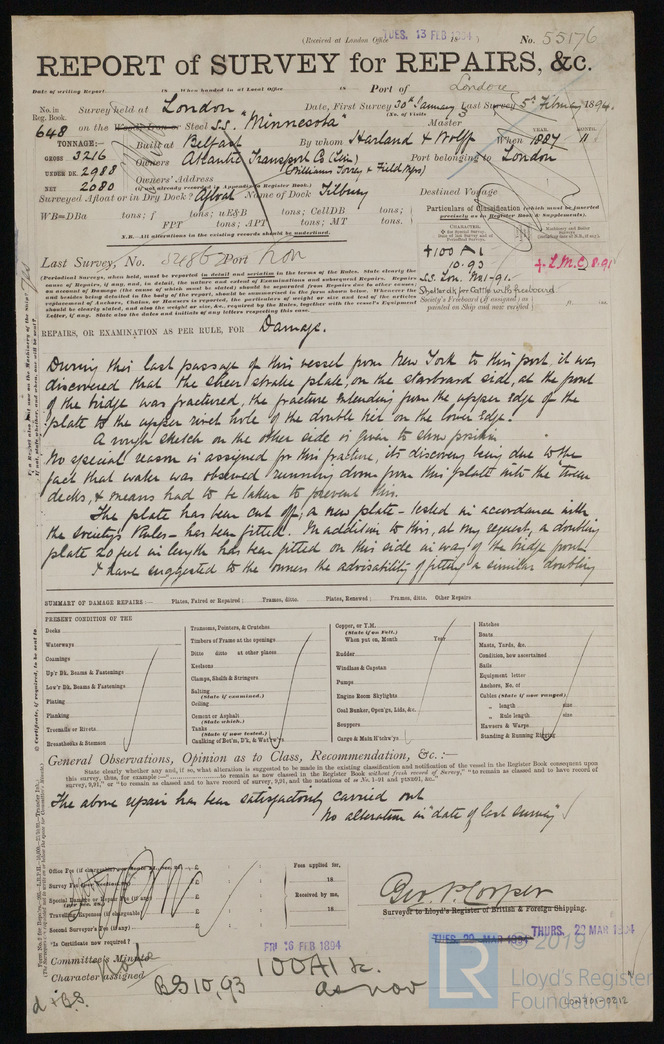 (Received at London Office TUES. 13 FEB 1894 18 )
No. 55176
REPORT of SURVEY for REPAIRS, &c.
Date of writing Report 18 When handed in at Local Office 18 Port of London
No. in Reg. Book. Survey held at London Date, First Survey 30th January Last Survey 5th February 1894
(No. of Visits 3
648 on the Wood, Iron or Steel S.S. "Minnesota" Master
TONNAGE:— Built at Belfast By whom Harland & Wolff When 1887 11
YEAR. MONTH.
GROSS 3216 Owners Atlantic Transport Co (Lim) Port belonging to London
UNDER DK. 2988 Owners' Address (Williams Torrey & Field Mgrs)
NET 2080 (if not already recorded in Appendix to Register Book.)
Surveyed Afloat or in Dry Dock? Afloat Name of Dock Tilbury Destined Voyage
WB=DBa tons; f tons; uE&B tons; CellDB tons;
FPT tons; APT tons; MT tons.
N.B.—All alterations in the existing records should be underlined.
Particulars of Classification (which must be inserted precisely as in Register Book & Supplements).
Last Survey, No. 54865 Port Lon
+100 A1
10.93
S.S. Lon. No1-91.
+L.M.C. 8.91
Shelterdk for Cattle with freeboard
Society's Freeboard (if assigned) as painted on Ship and now verified
ft. ins.
(Periodical Surveys, when held, must be reported in detail and seriatim in the terms of the Rules. State clearly the
REPAIRS, OR EXAMINATION AS PER RULE, FOR Damage.
During the last passage of this vessel from New York to this port it was
discovered that the sheer strake plate, on the starboard side, at the front
of the bridge was fractured, the fracture extending from the upper edge of the
plate to the upper rivet hole of the double tier on the lower edge.
A rough sketch on the other side is given to show position
No special reason is assigned for this fracture, its discovery being due to the
fact that water was observed running down from this plate into the 'tween
decks, & means had to be taken to prevent this.
The plate has been cut off; a new plate - tested in accordance with
the Society's Rules - has been fitted. In addition to this, at my request, a doubling
plate 20 feet in length has been fitted on this side in way of the bridge front.
I have suggested to the owners the advisability of fitting a similar doubling
SUMMARY OF DAMAGE REPAIRS:— Plates, Faired or Repaired; Frames, ditto. Plates, Renewed; Frames, ditto. Other Repairs
PRESENT CONDITION OF THE
Decks
Waterways
Coamings
Up'r Dk. Beams & Fastenings
Low'r Dk. Beams & Fastenings
Plating
Planking
Treenails or Rivets
Breasthooks & Stemson
Transoms, Pointers, & Crutches
Timbers of Frame at the openings
Ditto ditto at other places
Keelsons
Clamps, Shelfs & Stringers
Salting
(State if examined.)
Ceiling
Cement or Asphalt
(State which.)
Tanks
(State if now tested.)
Caulking of Bot'm, D'k, & Wat'rw'ys
Copper, or Y.M.
(State if on Felt.)
When put on, Month Year
Rudder
Windlass & Capstan
Pumps
Engine Room Skylights
Coal Bunker, Open'gs, Lids, &c.
Scuppers
Cargo & Main H'tchw'ys.
Hatches
Boats
Masts, Yards, &c.
Condition, how ascertained
Sails
Equipment letter
Anchors, No. of
Cables (State if now ranged)
" length size
" Rule length size
Hawsers & Warps
Standing & Running Rigging
General Observations, Opinion as to Class, Recommendation, &c. :—
State clearly whether any, and if so, what alteration is suggested to be made in the existing classification and notification of the vessel in the Register Book consequent upon
The above repair has been satisfactorily carried out
No alteration in "date of last survey"
Office Fee (if chargeable)
Survey Fee
Special Damage or Repair Fee (if any)
Travelling Expenses (if chargeable)
Second Surveyor's Fee (if any)
Fees applied for,
18
Received by me,
18
Geo. P. Cooper
Surveyor to Lloyd's Register of British & Foreign Shipping.
*Is Certificate now required?
Committee's Minute
FRI 16 FEB 1894
TUES. 20 MAR 1894
THURS. 29 MAR 1894
Character assigned
100A1 &c.
as now
BS 10,93
© 2019
LR
Lloyd's Register
Foundation
LON701-0212